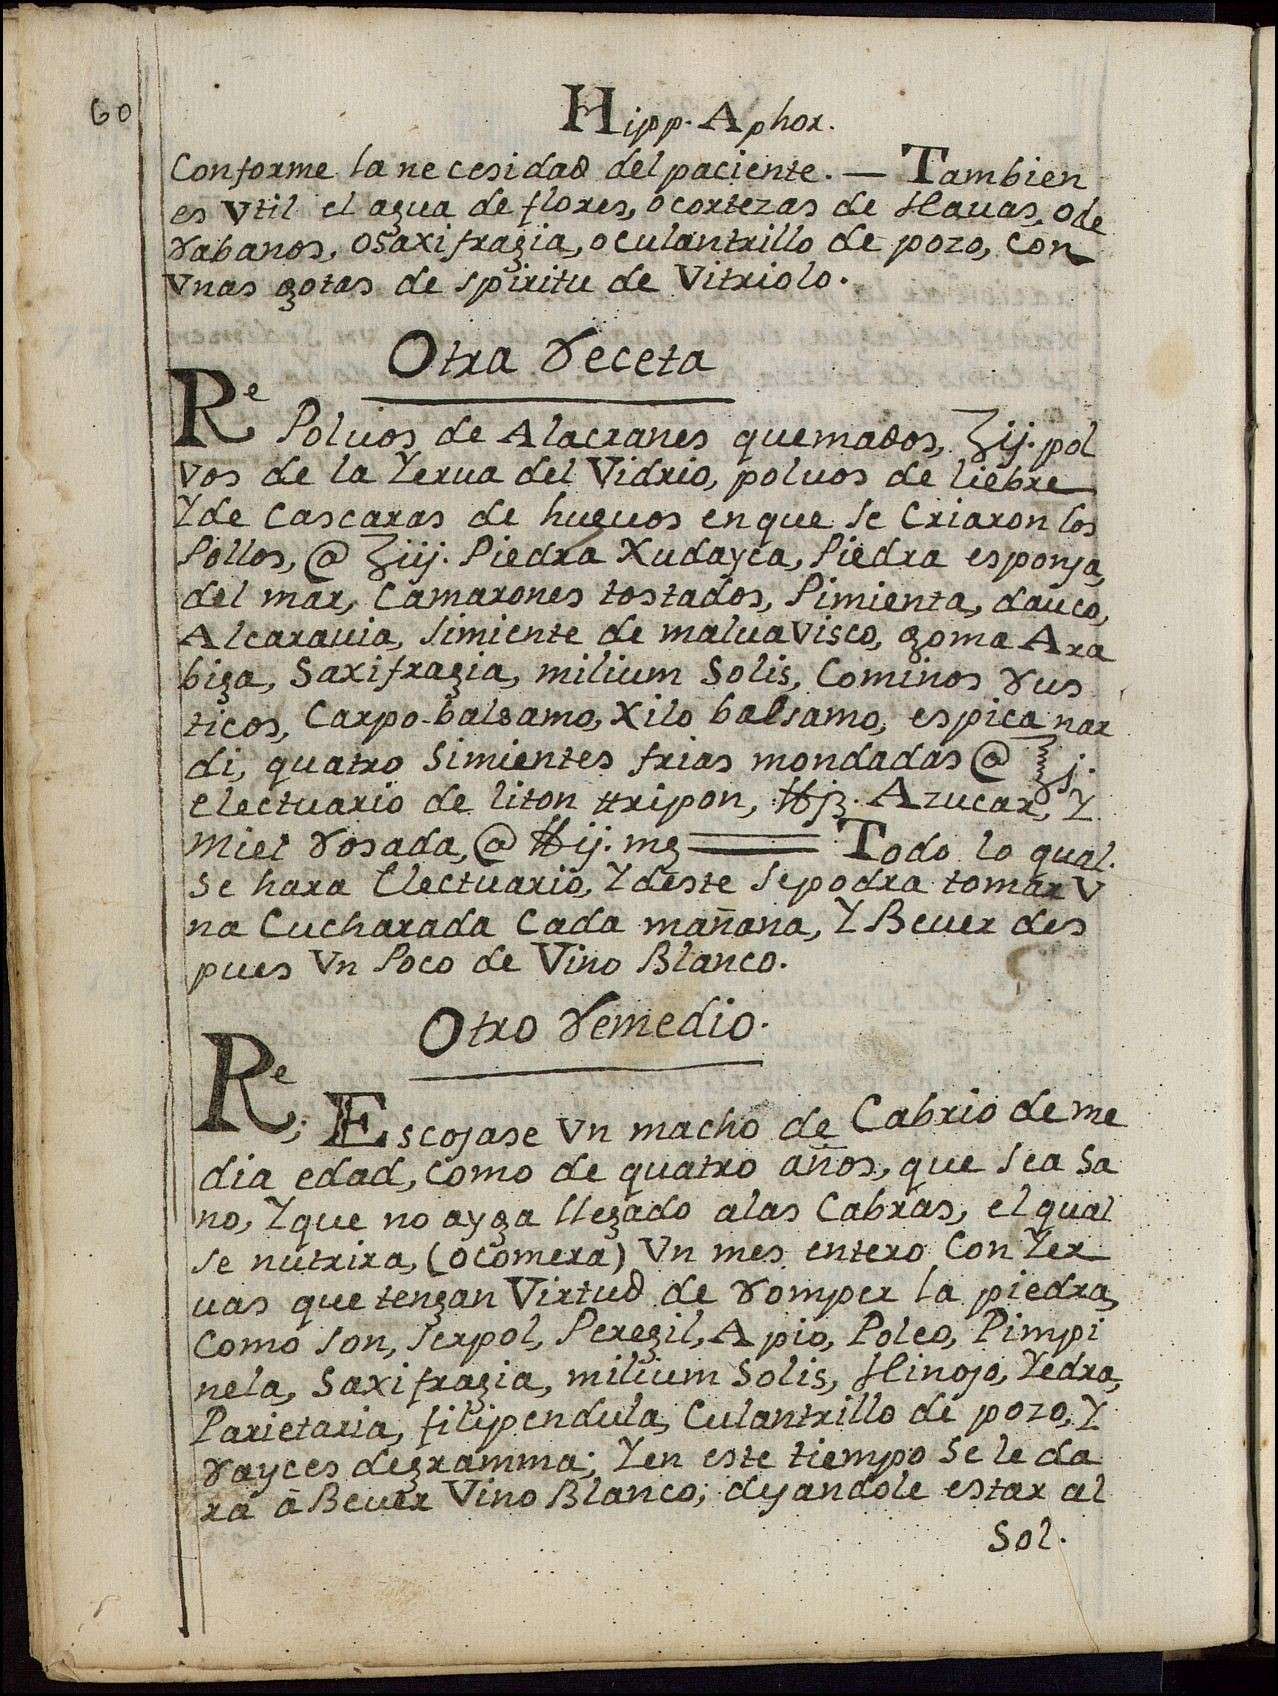 60
Hipp. Aphor.
Conforme la necesidad del paciente. — Tambien
es Vtil el agua de flores, o cortezas de Hauas, o de
rabanos, o Saxifragia, o culantrillo de pozo, con
Vnas gotas de spiritu de Vitriolo.
Otra receta
Re Poluos de Alacranes quemados, ʒij. pol
vos de la Yerua del Vidrio, poluos de liebre
Y de Cascaras de hueuos en que se Criaron los
Pollos, @ ʒiij. Piedra Xudayca, Piedra esponja,
del mar, Camarones tostados, Pimienta, dauco,
Alcarauia, simiente de maluavisco, goma Ara
biga, Saxifragia, milium Solis, Cominos rus
ticos, Carpo-balsamo, Xilo balsamo, espica nar
di, quatro Simientes frias mondadas @ ℥j.
Electuario de liton ttripon, ℔jß. Azucar, Y
Miel rosada, @ ℔ij. mg == Todo lo qual.
se hara Electuario, Y deste se podra tomar V
na Cucharada Cada mañana, Y Beuer des
pues Vn Poco de Vino Blanco.
Otro remedio.
Re; Escojase Vn macho de Cabrio de me
dia edad, como de quatro años, que sea Sa
no, Y que no ayga llegado a las Cabras, el qual
se nutrira, (o comera) Vn mes entero Con Yer
uas que tengan Virtud de romper la piedra,
Como son, serpol, Peregil, Apio, Poleo, Pimpi
nela, Saxifragia, milium Solis, Hinojo, Yedra,
Parietaria, filipendula, Culantrillo de pozo, Y
rayces de gramma; Y en este tiempo se le da
ra â Beuer Vino Blanco; dejandole estar al
Sol.